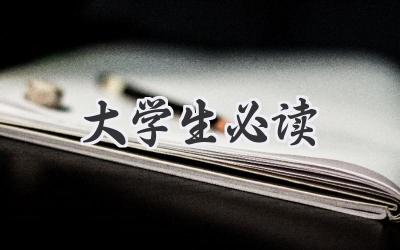 大学生必读